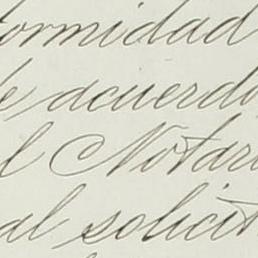 ormidad
e acuerdo
l Notari
al solicit